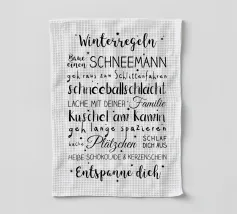 Winterregeln
Baue einen SCHNEEMANN
geh raus zum Schlittenfahren
schneeballschlacht
LACHE MIT DEINER Familie
Kuschel am Kamin
geh lange spazieren
backe Plätzchen SCHLAF DICH AUS
HEIßE SCHOKOLADE & KERZENSCHEIN
Entspanne dich